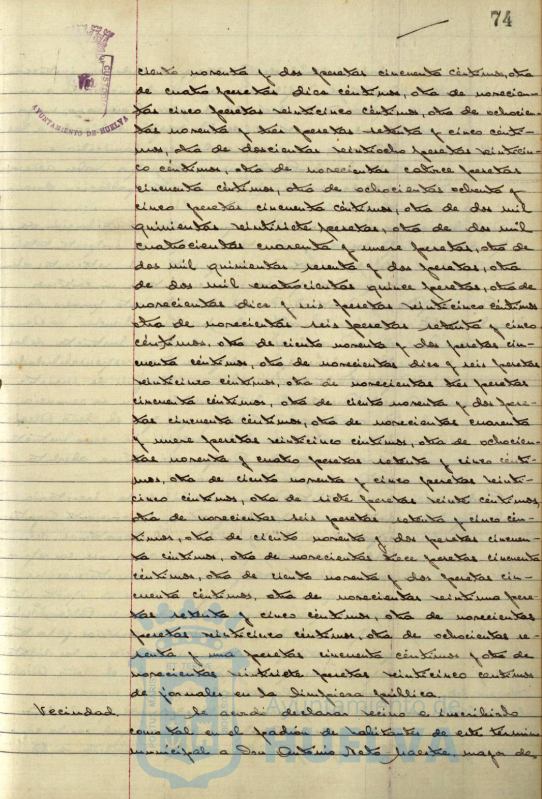 74
AYUNTAMIENTO DE HUELVA
ciento noventa y dos pesetas cincuenta céntimos, otra
de cuatro pesetas diez céntimos, otra de novecien-
tas cinco pesetas veinticinco céntimos, otra de ochocien-
tas noventa y tres pesetas setenta y cinco cénti-
mos, otra de doscientas veintiocho pesetas veinticin-
co céntimos, otra de novecientas catorce pesetas
cincuenta céntimos, otra de ochocientas ochenta y
cinco pesetas cincuenta céntimos, otra de dos mil
quinientas veintisiete pesetas, otra de dos mil
cuatrocientas cuarenta y nueve pesetas, otra de
dos mil quinientas sesenta y dos pesetas, otra
de dos mil cuatrocientas quince pesetas, otra de
novecientas diez y seis pesetas veinticinco céntimos
otra de novecientas seis pesetas setenta y cinco
céntimos, otra de ciento noventa y dos pesetas cin-
cuenta céntimos, otra de novecientas diez y seis pesetas
veinticinco céntimos, otra de novecientas tres pesetas
cincuenta céntimos, otra de ciento noventa y dos pese-
tas cincuenta céntimos, otra de novecientas cuarenta
y nueve pesetas veinticinco céntimos, otra de ochocien-
tas noventa y cuatro pesetas setenta y cinco cénti-
mos, otra de ciento noventa y cinco pesetas veinti-
cinco céntimos, otra de siete pesetas veinte céntimos,
otra de novecientas seis pesetas setenta y cinco cén-
timos, otra de ciento noventa y dos pesetas cincuen-
ta céntimos, otra de novecientas trece pesetas cincuenta
céntimos, otra de ciento noventa y dos pesetas cin-
cuenta céntimos, otra de novecientas veintiuna pese-
tas setenta y cinco céntimos, otra de novecientas
pesetas veinticinco céntimos, otra de ochocientas se-
senta y una pesetas cincuenta céntimos y otra de
novecientas veintisiete pesetas veinticinco céntimos
de jornales en la limpieza pública
Vecindad. Se acordó declarar vecino e inscribirlo
como tal en el padrón de habitantes de este término
municipal a Don Antonio Mata, maestre mayor de
Ayuntamiento de
HUELVA